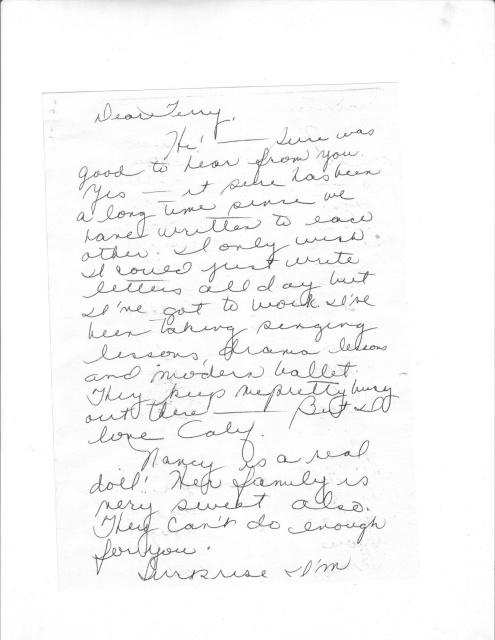 Dear Terry,
Hi! — Sure was
good to hear from you.
Yes — it sure has been
a long time since we
have written to each
other. I only wish
I could just write
letters all day but
I've got to work. I've
been taking singing
lessons, drama lessons
and modern ballet.
They keep me pretty busy
out there — But I
love Calif.
Nancy is a real
doll! Her family is
very sweet also.
They can't do enough
for you.
Surprise I'm